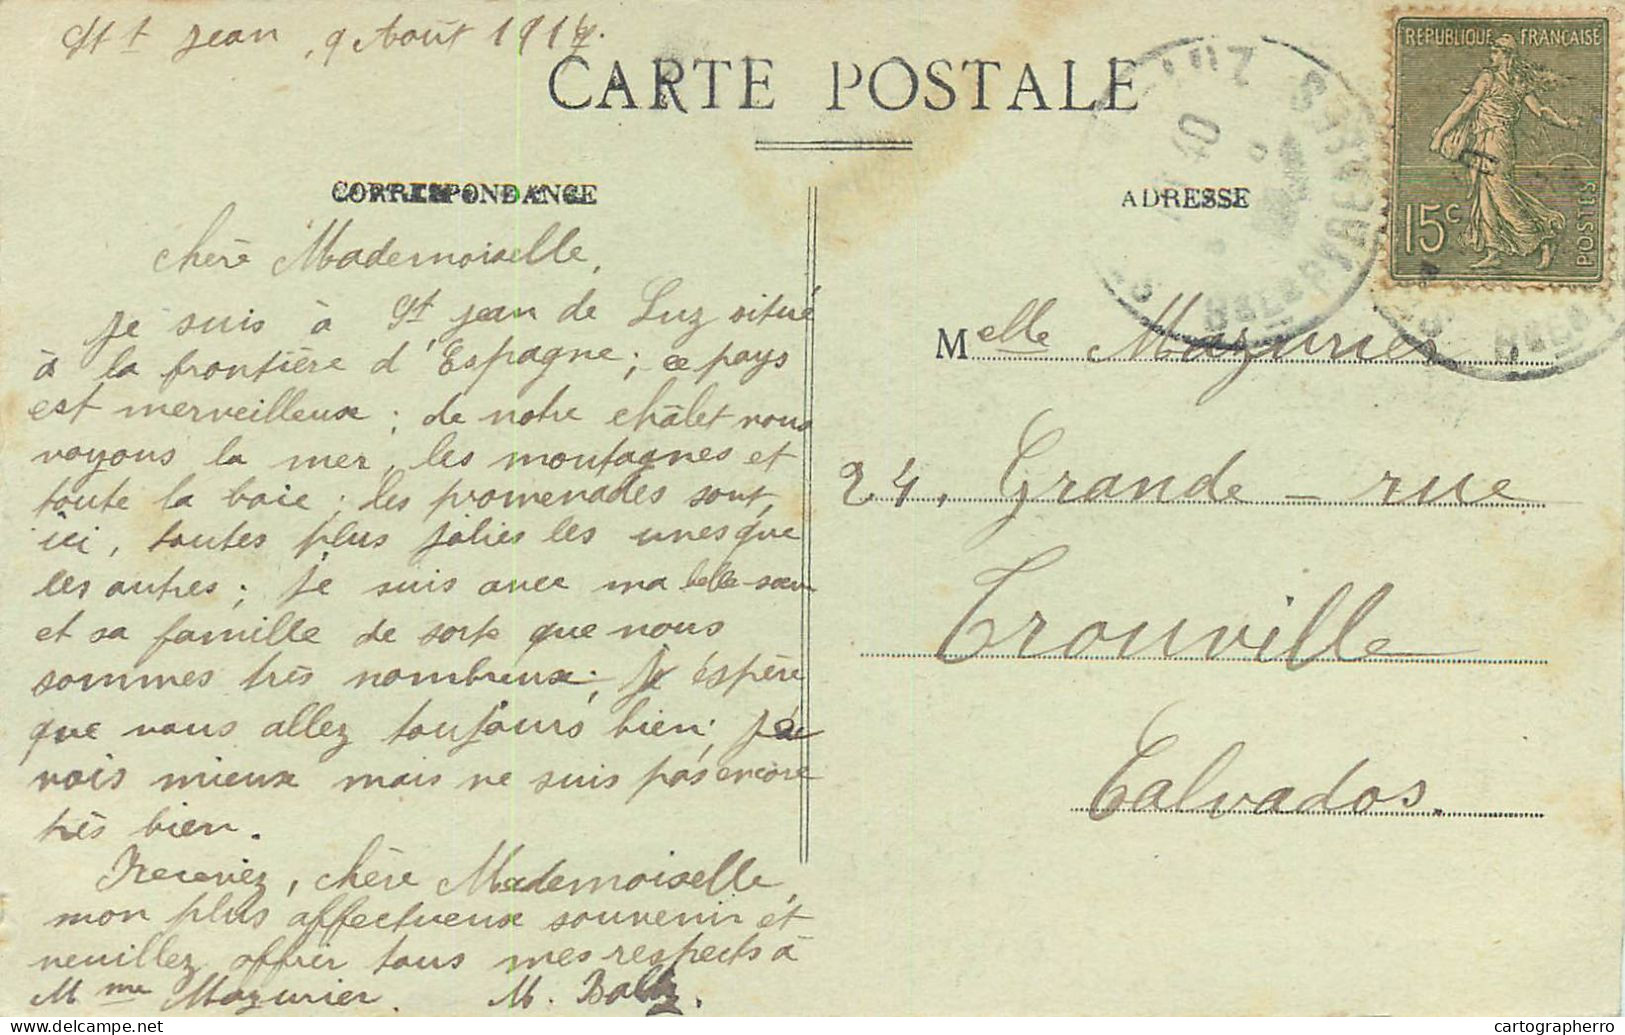 St Jean, 9 Août 1917.
CARTE POSTALE
CORRESPONDANCE
chère Mademoiselle,
Je suis à St Jean de Luz situé
à la frontière d'Espagne; ce pays
est merveilleux; de notre châlet nous
voyons la mer, les montagnes et
toute la baie; les promenades sont,
ici, toutes plus jolies les unes que
les autres; je suis avec ma belle-sœur
et sa famille de sorte que nous
sommes très nombreux; J'espère
que vous allez toujours bien; je
vais mieux mais ne suis pas encore
très bien.
Recevez, chère Mademoiselle,
mon plus affectueux souvenir et
veuillez offrir tous mes respects à
Mme Mazurier. M.
ADRESSE
Melle Mazurier
24, Grande-rue
Trouville
Calvados.
REPUBLIQUE FRANÇAISE
15c
POSTES
LUZ
cartographerro.com